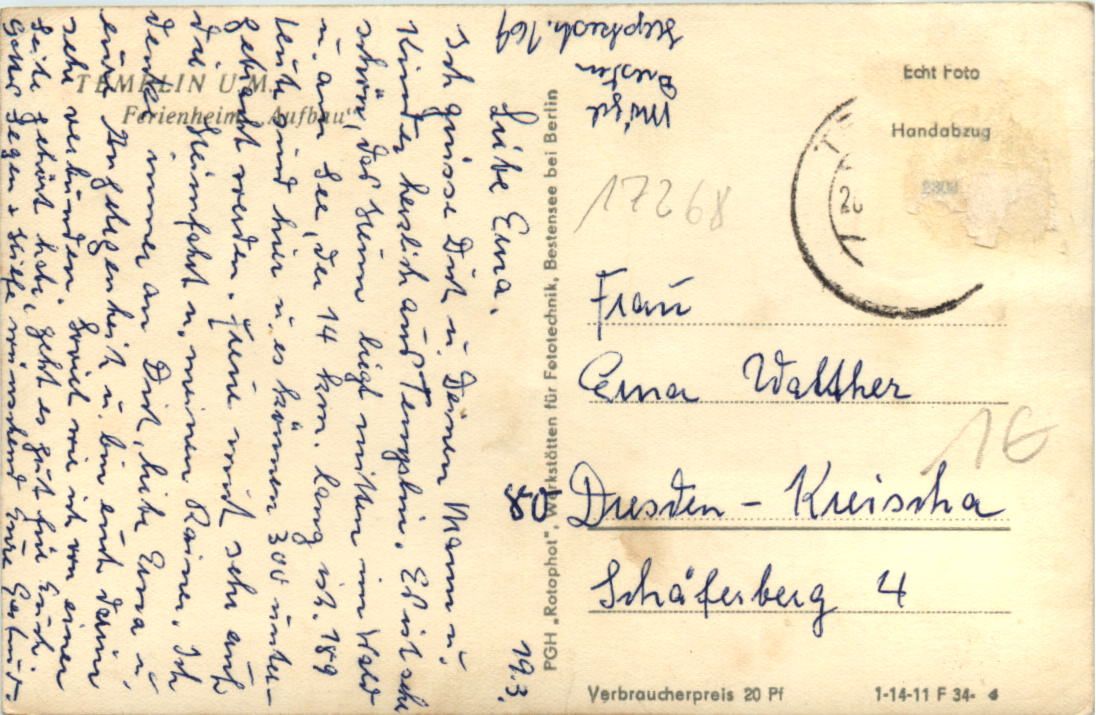 TEMPLIN U.M.
Ferienheim „Aufbau"
19.3.
Liebe Erna.
Ich grüsse Dich u. Deinen Mann u.
Kinder herzlich aus Templin. Es ist sehr
schön, das Heim liegt mitten im Wald
u. am See, der 14 km. lang ist. 189
Leute sind hier u. es können 300 unter-
gebracht werden. Freue mich sehr auf
die Heimfahrt u. meinen Rainer. Ich
denke immer an Dich, liebe Erna u.
eure Angelegenheit u. bin euch darin
sehr verbunden. Soviel wie ich von einer
Seite gehört habe, geht es gut für Euch.
Gottes Segen + Hilfe wünschend Eure Gertrud.
Dresden
169
PGH „Rotophot", Werkstätten für Fototechnik, Bestensee bei Berlin
Echt Foto
Handabzug
17268
Frau
Erna Walther
80 Dresden - Kreischa
Schäferberg 4
16
Verbraucherpreis 20 Pf
1-14-11 F 34-